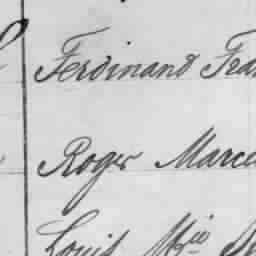 Ferdinand Fran
Roger Marce
Louis Mie